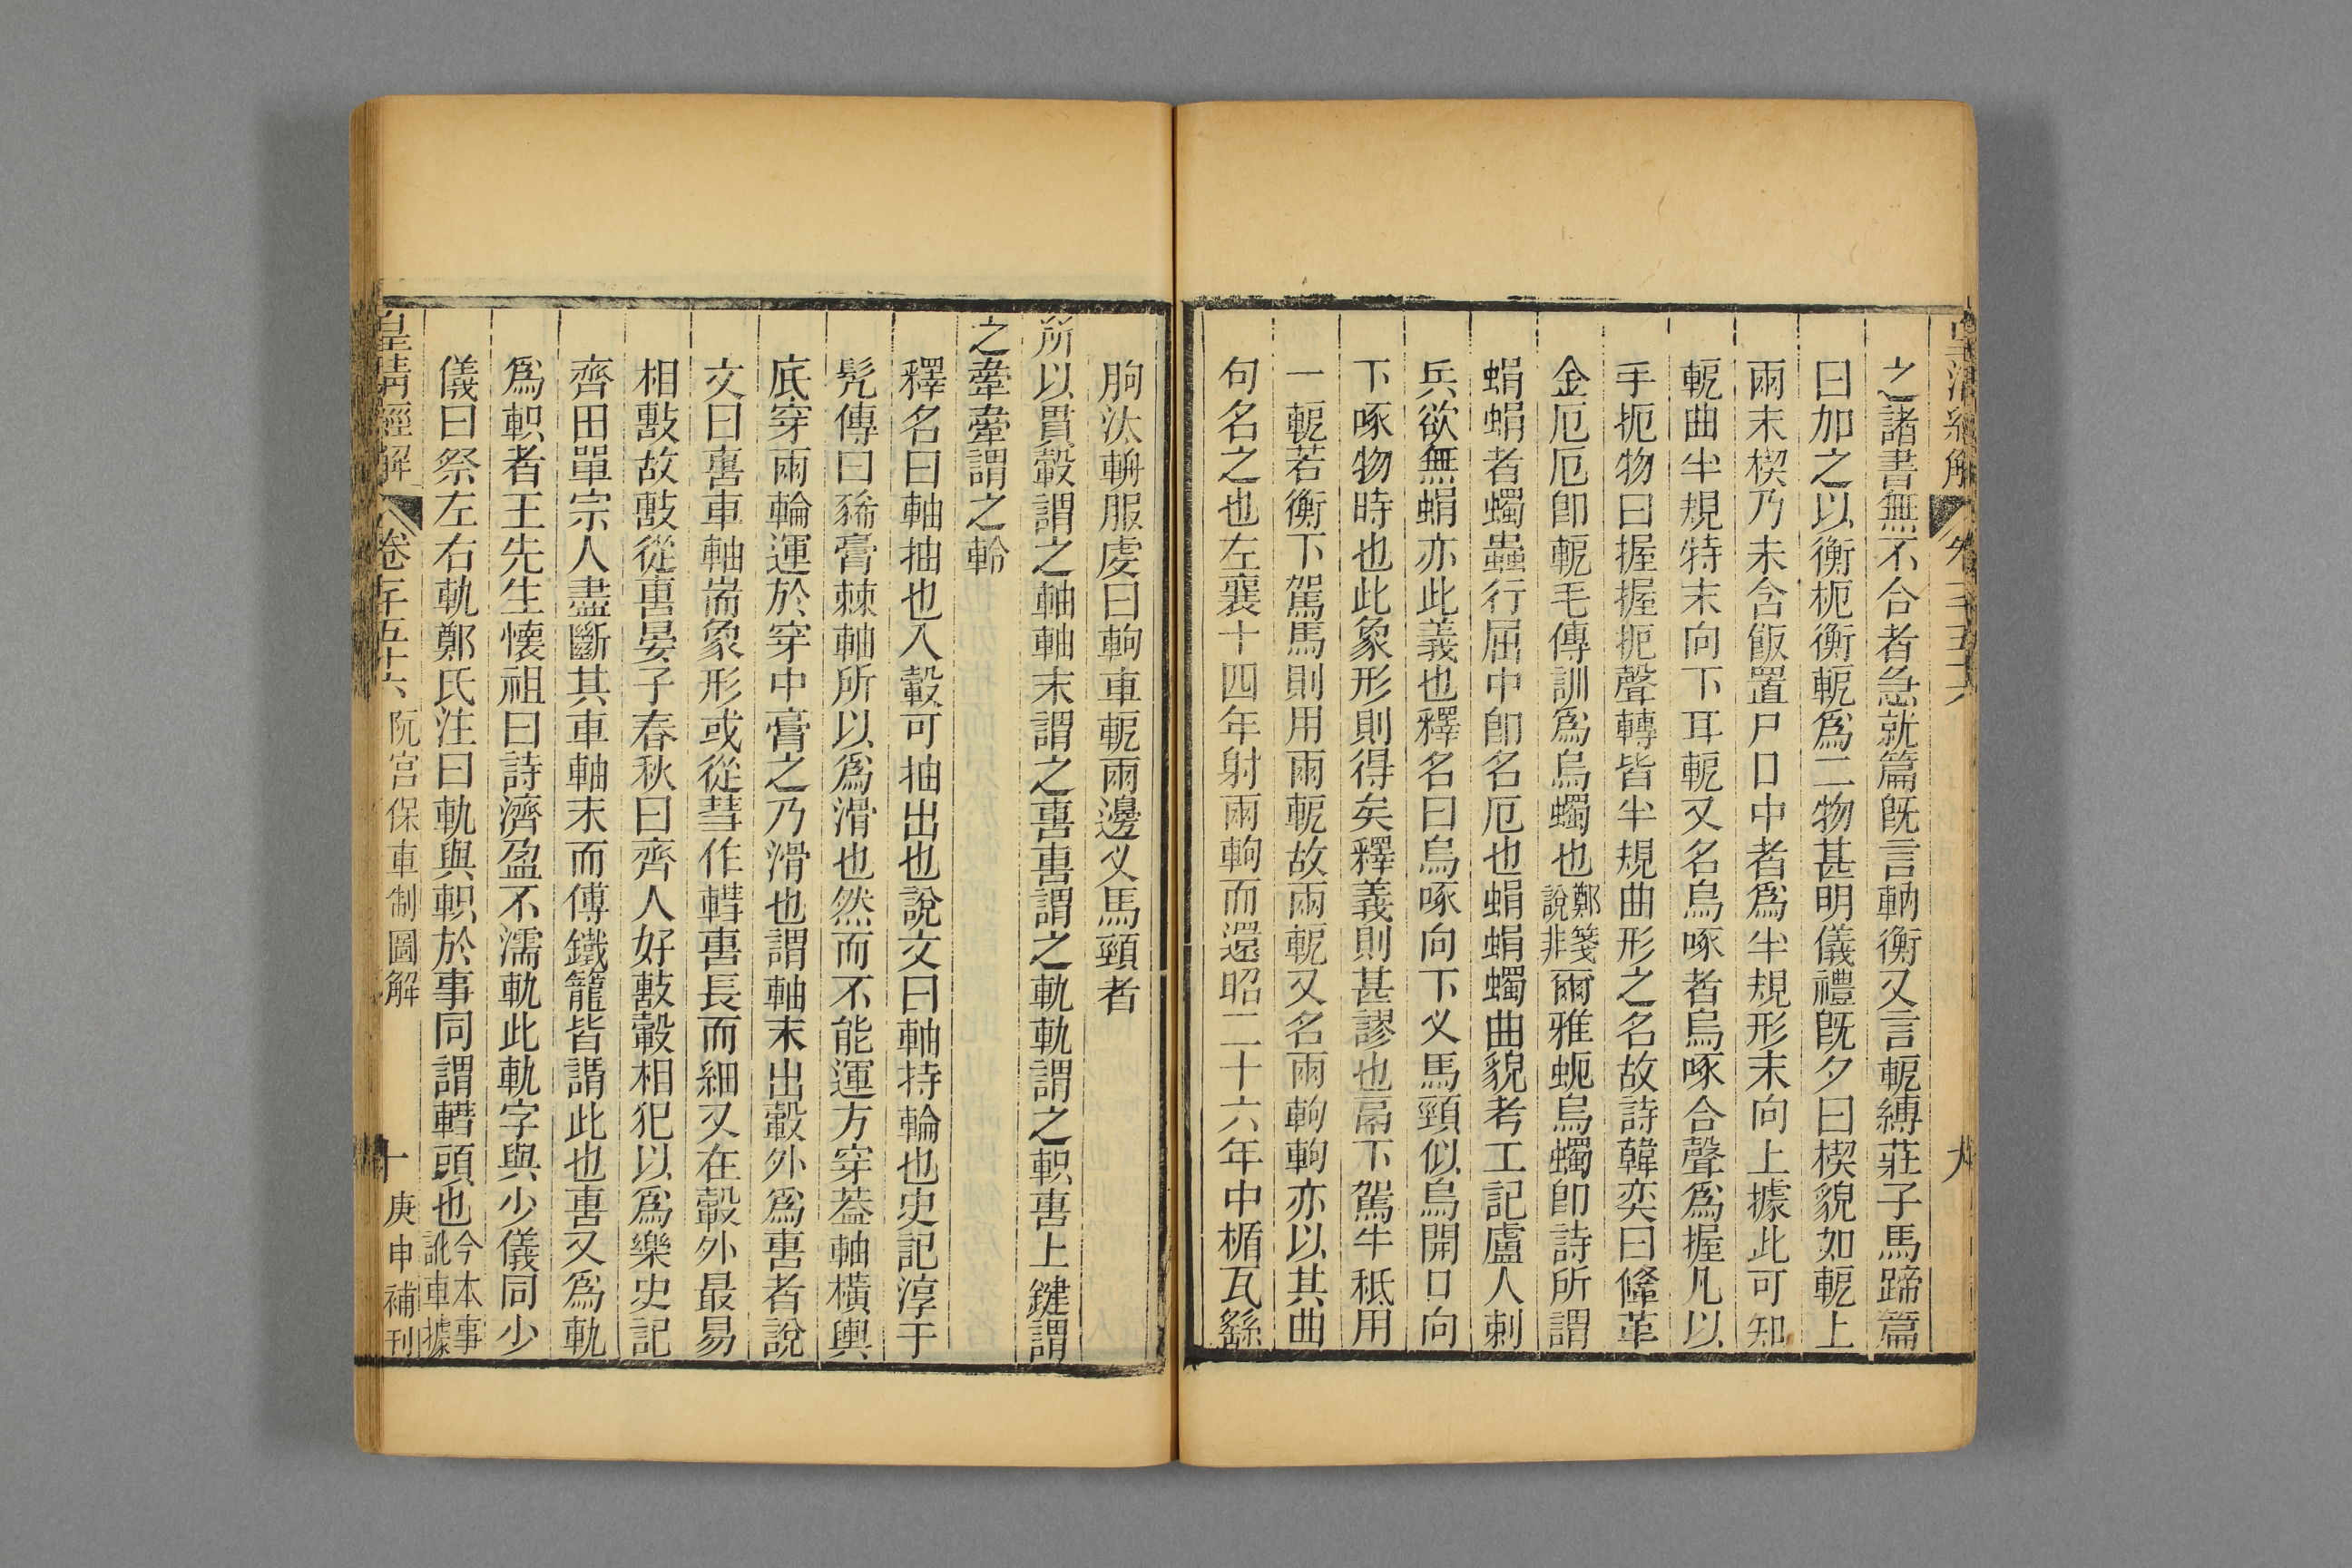 皇清經解
卷
九
之諸書無不合者急就篇旣言軜衡又言軶縛莊子馬蹄篇
曰加之以衡枙衡軶爲二物甚明儀禮旣夕曰楔貌如軶上
兩末楔乃未含飯置尸口中者爲半規形末向上據此可知
軶曲半規特末向下耳軶又名烏啄者烏啄合聲爲握凡以
手扼物曰握握扼聲轉皆半規曲形之名故詩韓奕曰鞗革
金厄厄卽軶毛傳訓爲烏蠋也鄭箋說非爾雅蚅烏蠋卽詩所謂
蜎蜎者蠋蟲行屈中卽名厄也蜎蜎蠋曲貌考工記廬人刺
兵欲無蜎亦此義也釋名曰烏啄向下义馬頸似烏開口向
下啄物時也此象形則得矣釋義則甚謬也鬲下駕牛秪用
一軶若衡下駕馬則用兩軶故兩軶又名兩軥軥亦以其曲
句名之也左襄十四年射兩軥而還昭二十六年中楯瓦繇
朐汰輈服虔曰軥車軶兩邊义馬頸者
所以貫轂謂之軸軸末謂之軎軎謂之軌軌謂之軹軎上鍵謂
之舝舝謂之軨
釋名曰軸抽也入轂可抽出也說文曰軸持輪也史記淳于
髠傳曰豨膏棘軸所以爲滑也然而不能運方穿葢軸橫輿
底穿兩輪運於穿中膏之乃滑也謂軸末出轂外爲軎者說
文曰軎車軸耑象形或從彗作轊軎長而細又在轂外最易
相𣪠故𣪠從軎晏子春秋曰齊人好𣪠轂相犯以爲樂史記
齊田單宗人盡斷其車軸末而傅鐵籠皆謂此也軎又爲軌
爲軹者王先生懷祖曰詩濟盈不濡軌此軌字與少儀同少
儀曰祭左右軌鄭氏注曰軌與軹於事同謂轊頭也今本事訛車據
皇清經解
卷千五十六
阮宮保車制圖解
十
庚申補刊